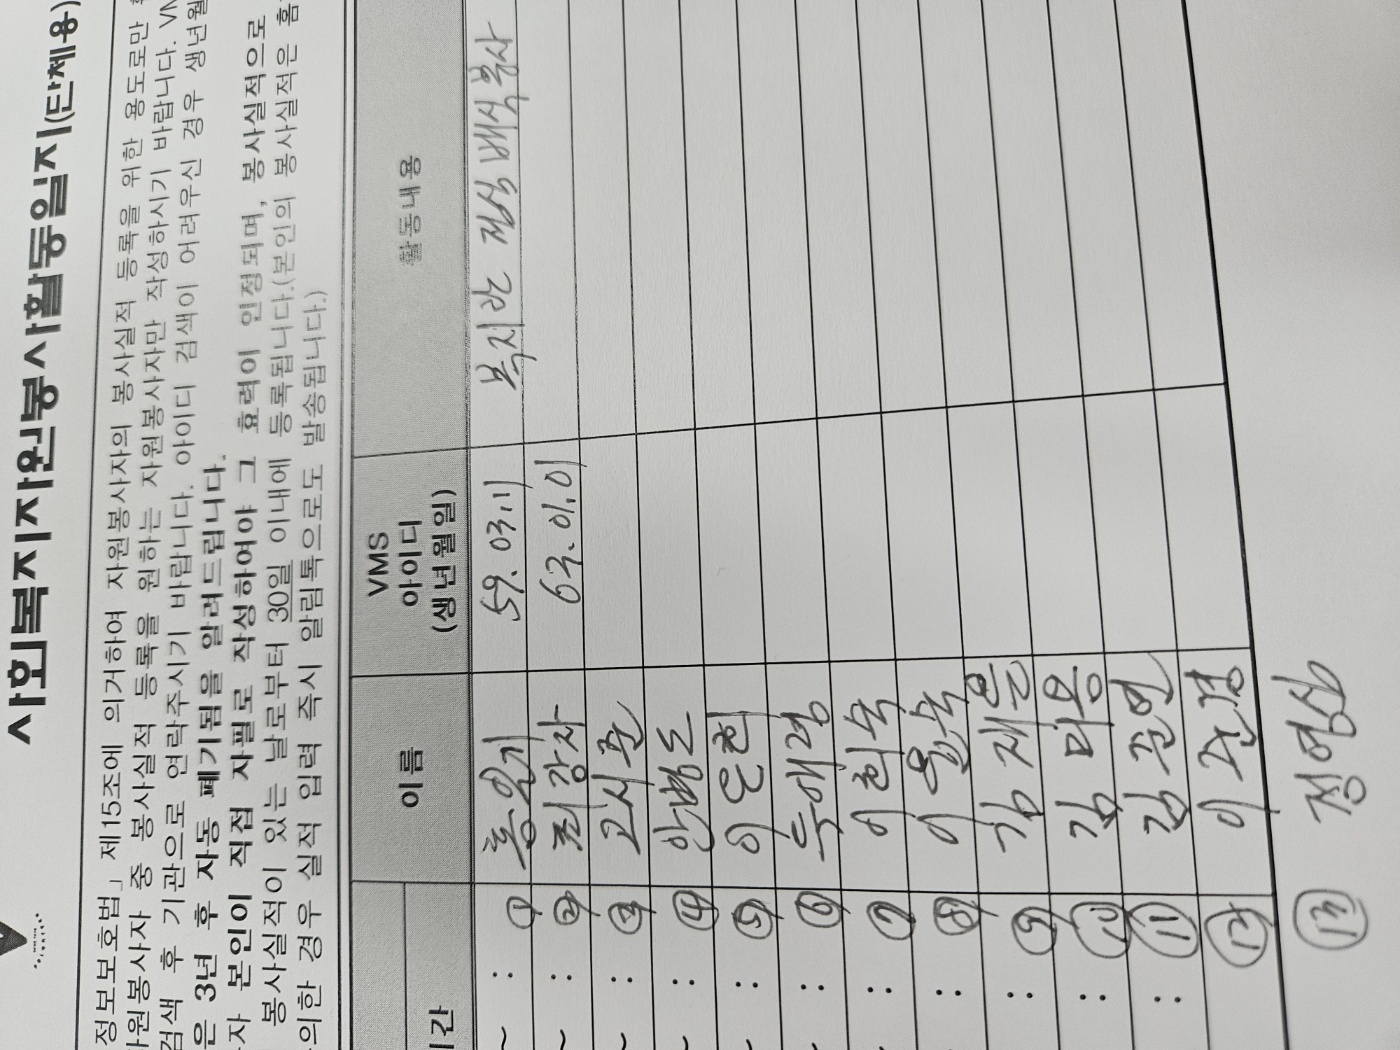 사회복지자원봉사활동일지(단체용)
정보보호법」 제15조에 의거하여 자원봉사자의 봉사실적 등록을 위한 용도로만
자원봉사자 중 봉사실적 등록을 원하는 자원봉사자만 작성하시기 바랍니다.
검색 후 기관으로 연락주시기 바랍니다. 아이디 검색이 어려우신 경우 생년월
은 3년 후 자동 폐기됨을 알려드립니다.
자 본인이 직접 자필로 작성하여야 그 효력이 인정되며, 봉사실적으로
봉사실적이 있는 날로부터 30일 이내에 등록됩니다.(본인의 봉사실적은 홈
의한 경우 실적 입력 즉시 알림톡으로도 발송됩니다.)
시간 이름 VMS 아이디 (생년월일) 활동내용
~ : ① 홍일기 59.03.11 복지관 점심 배식봉사
~ : ② 최강자 63.01.01
~ : ③ 고시훈
~ : ④ 안병도
~ : ⑤ 이은희
~ : ⑥ 득애경
~ : ⑦ 이희숙
: ⑧ 이월숙
: ⑨ 김재은
: ⑩ 김미용
: ⑪ 김순연
⑫ 이순경
⑬ 정영상